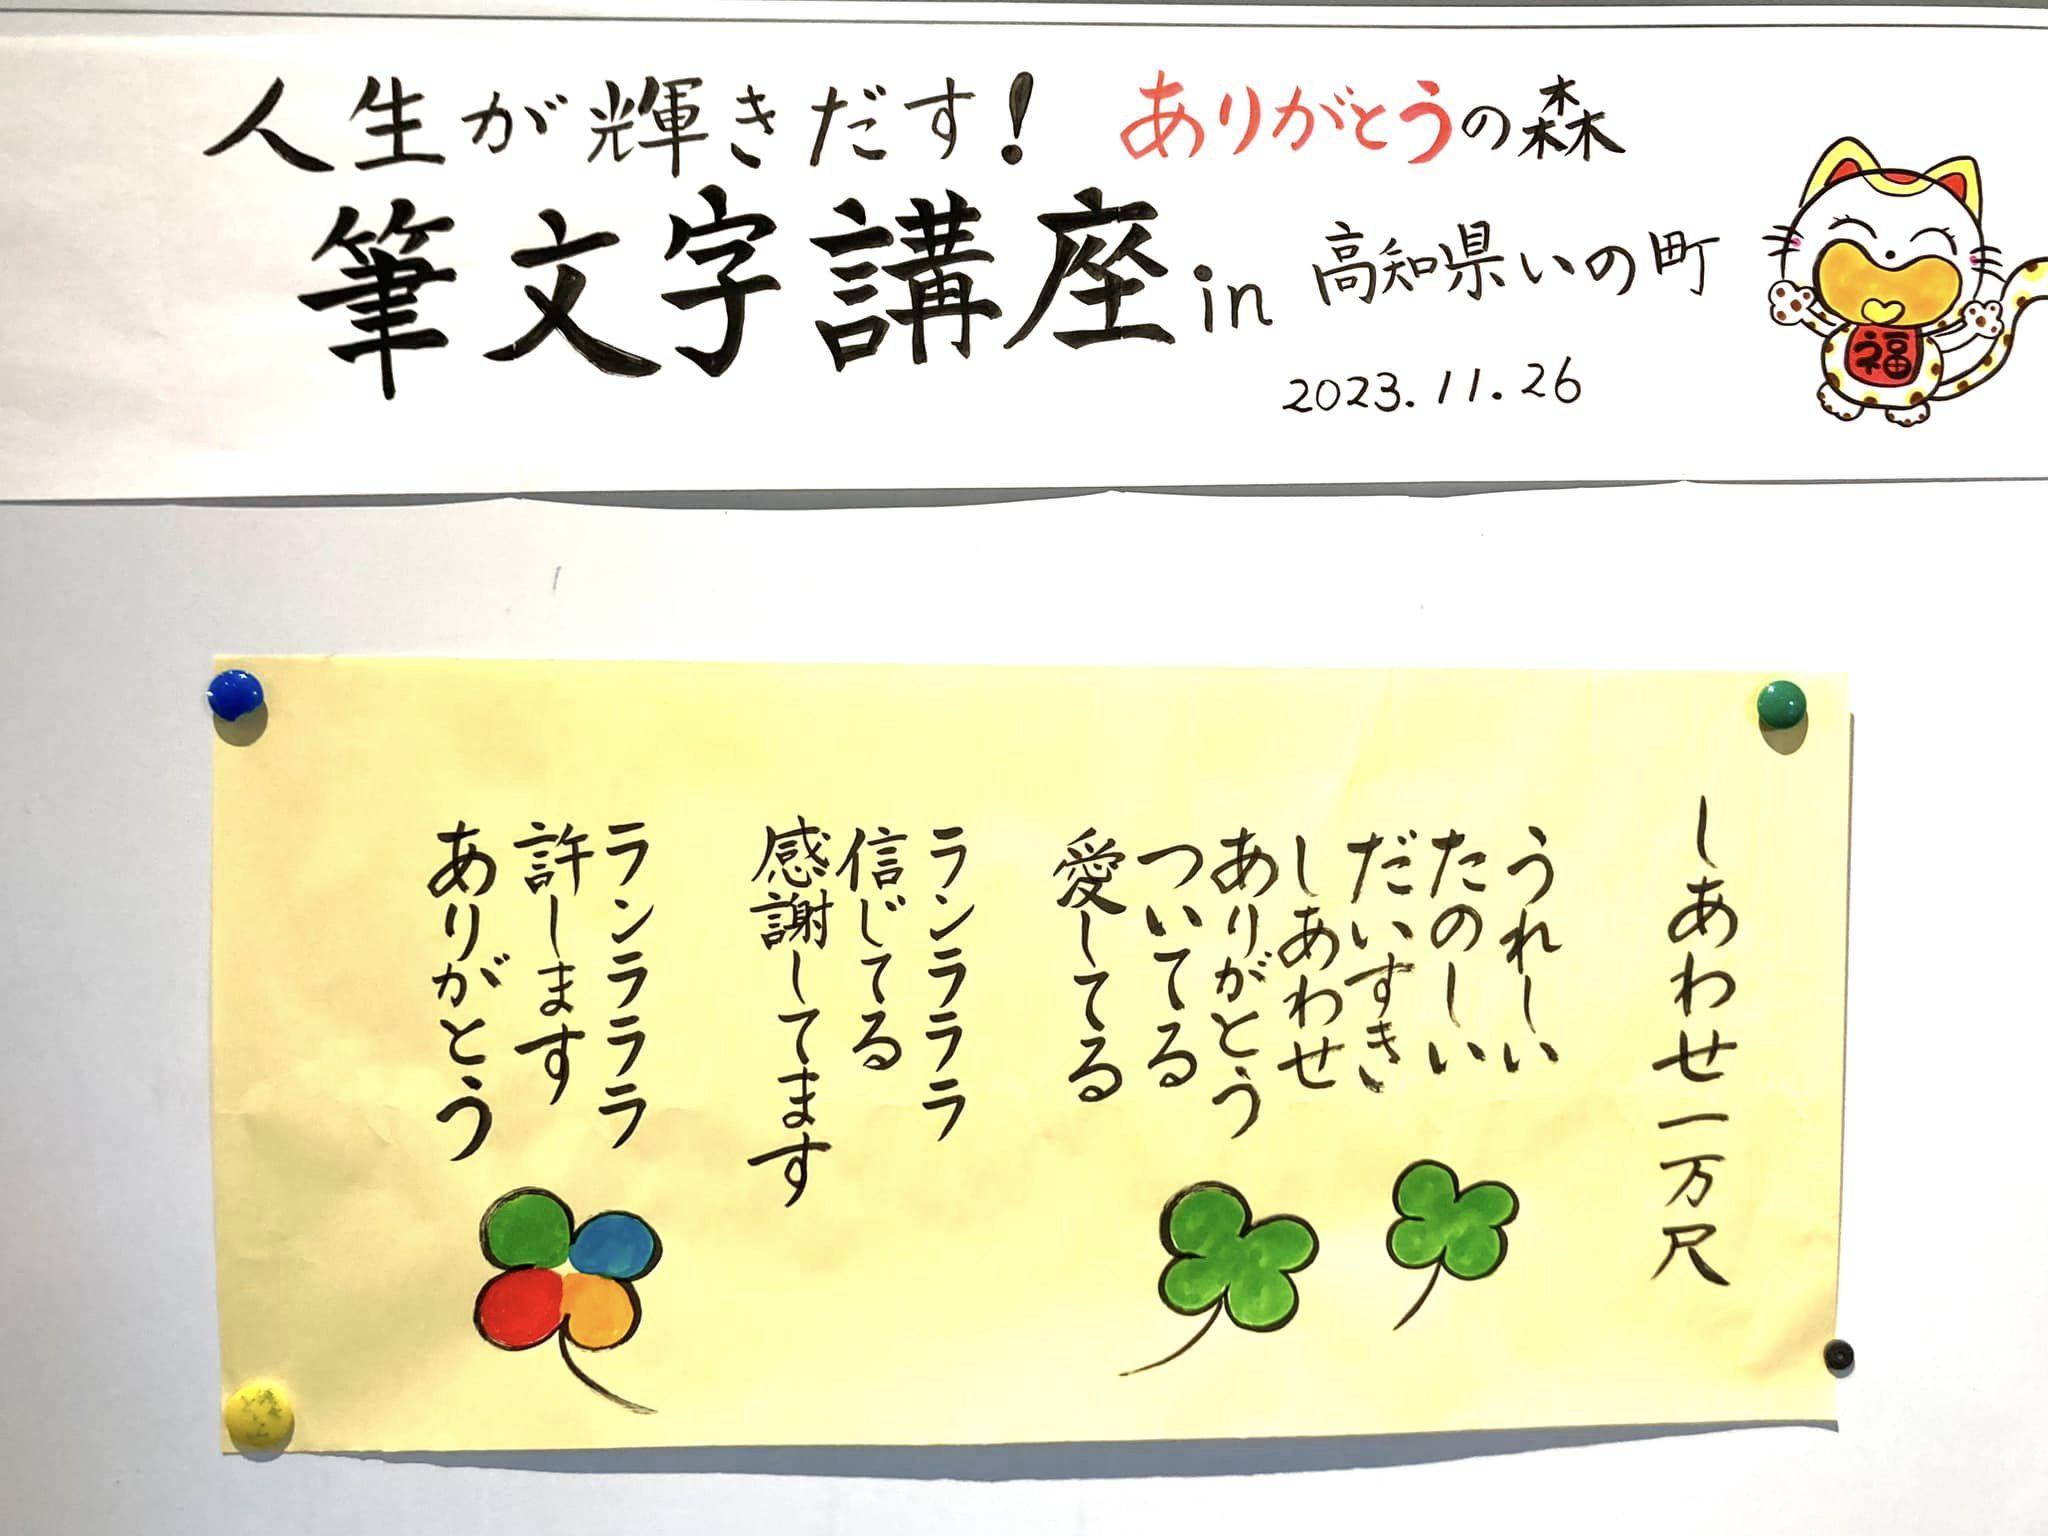 人生が輝きだす! ありがとうの森
筆文字講座 in 高知県いの町
2023.11.26
福
しあわせ一万尺
うれしい
たのしい
だいすき
しあわせ
ありがとう
ついてる
愛してる
ランラララ
信じてる
感謝してます
ランラララ
許します
ありがとう